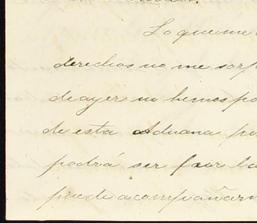 Lo que me
derechos no me sorp
de ayer no hemos po
de esta Aduana pa
podrá ser por la
puede acompañarm